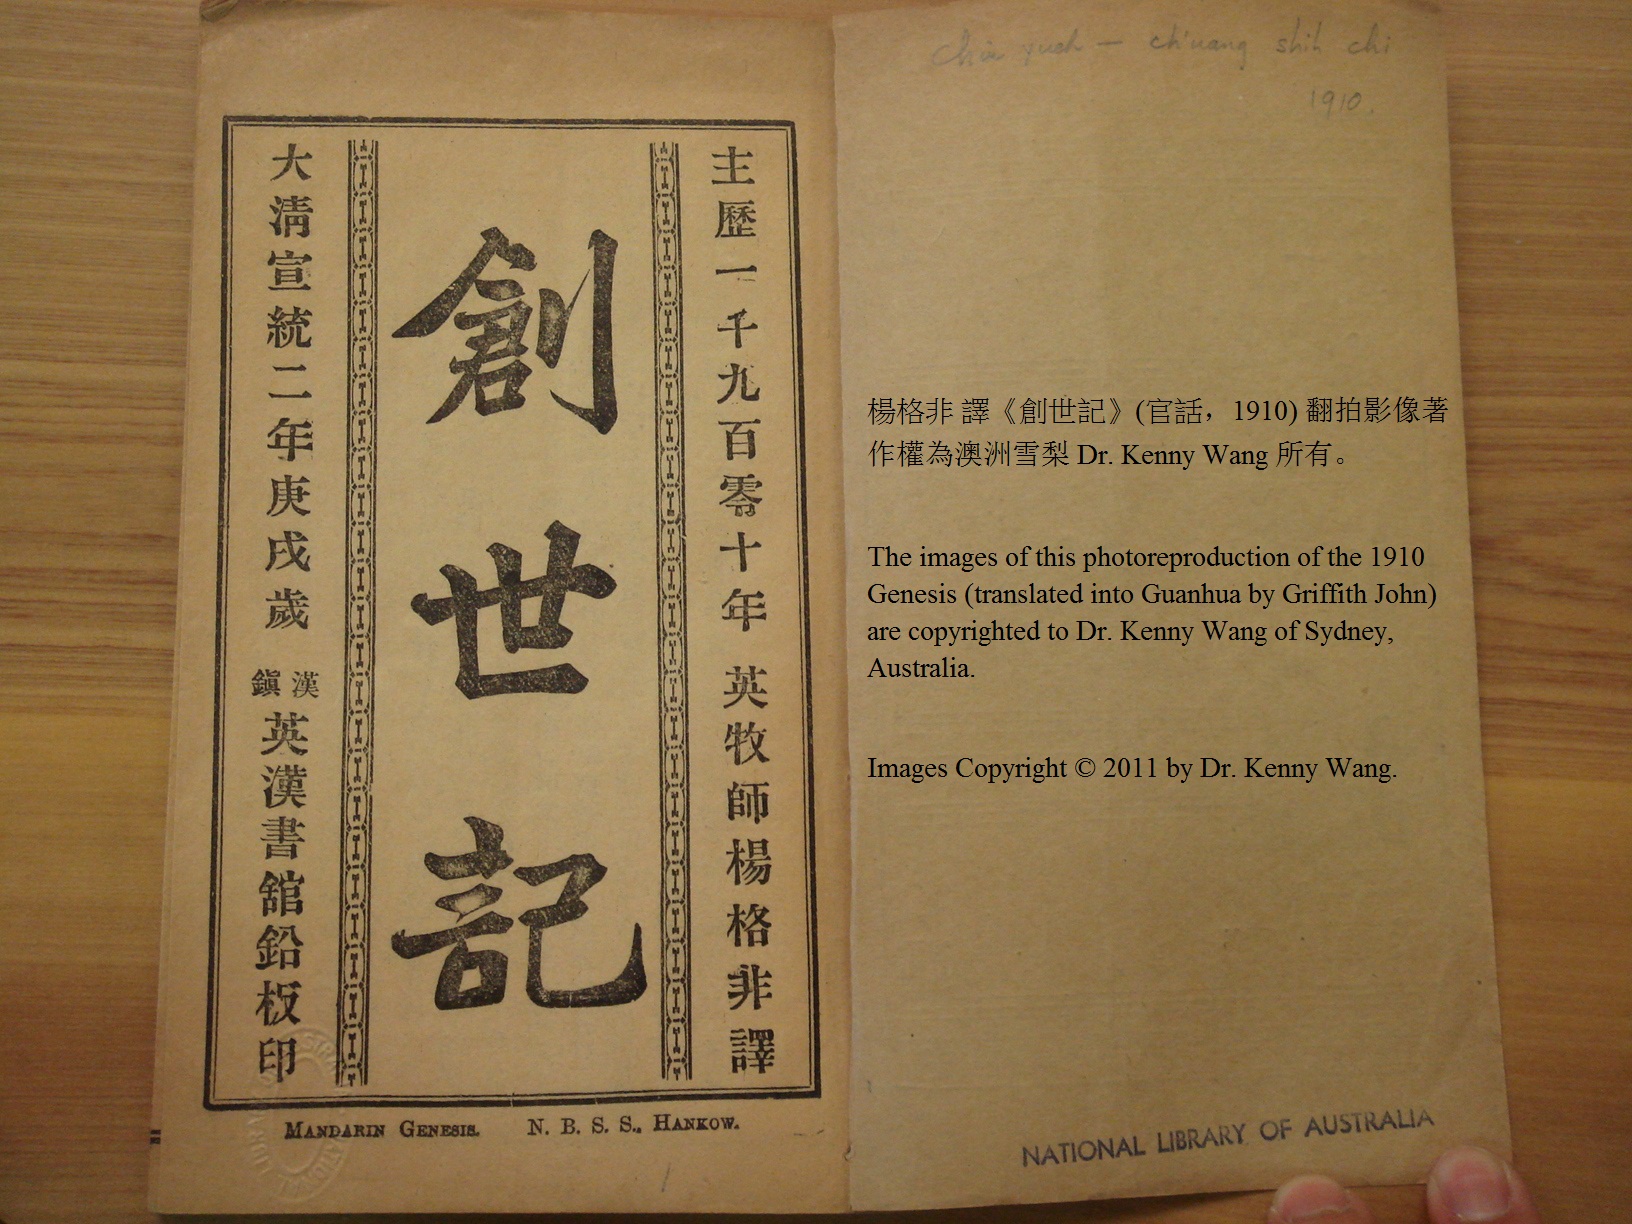 主歷一千九百零十年 英牧師楊格非譯
創世記
大清宣統二年庚戌歲 漢鎭英漢書舘鉛板印
MANDARIN GENESIS. N. B. S. S., HANKOW.
Chiu yueh — ch'uang shih chi
1910.
楊格非 譯《創世記》(官話，1910) 翻拍影像著
作權為澳洲雪梨 Dr. Kenny Wang 所有。
The images of this photoreproduction of the 1910
Genesis (translated into Guanhua by Griffith John)
are copyrighted to Dr. Kenny Wang of Sydney,
Australia.
Images Copyright © 2011 by Dr. Kenny Wang.
NATIONAL LIBRARY OF AUSTRALIA